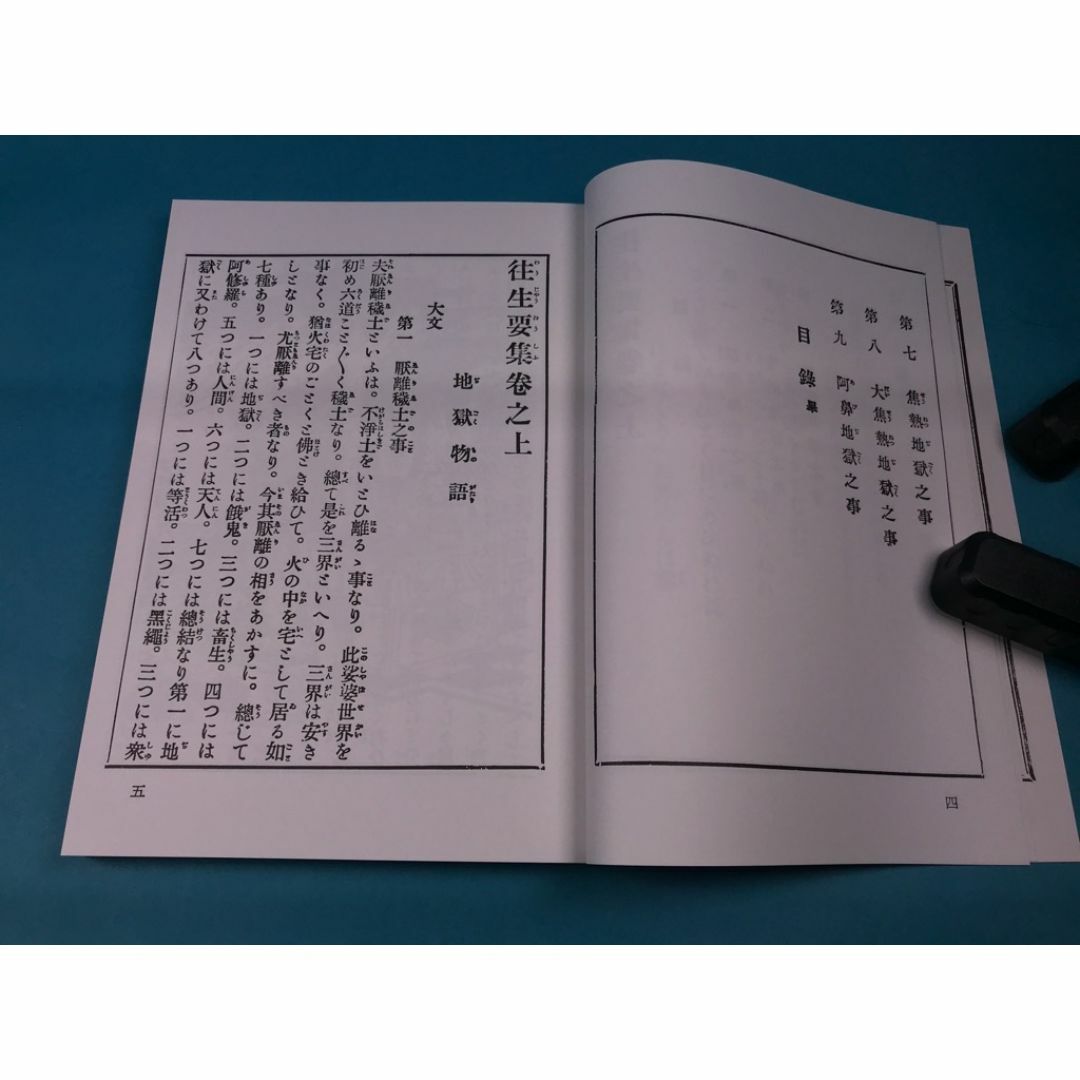 第七 焦熱地獄之事
第八 大焦熱地獄之事
第九 阿鼻地獄之事
目錄畢
四
往生要集卷之上
地獄物語
大文
第一 厭離穢土之事
夫厭離穢土といふは。不淨土をいとひ離るゝ事なり。此娑婆世界を
初め六道こと〴〵く穢土なり。總て是を三界といへり。三界は安き
事なく。猶火宅のごとくと佛とき給ひて。火の中を宅として居る如
しとなり。尤厭離すべき者なり。今其厭離の相をあかすに。總じて
七種あり。一つには地獄。二つには餓鬼。三つには畜生。四つには
阿修羅。五つには人間。六つには天人。七つには總結なり第一に地
獄に又わけて八つあり。一つには等活。二つには黑繩。三つには衆
五